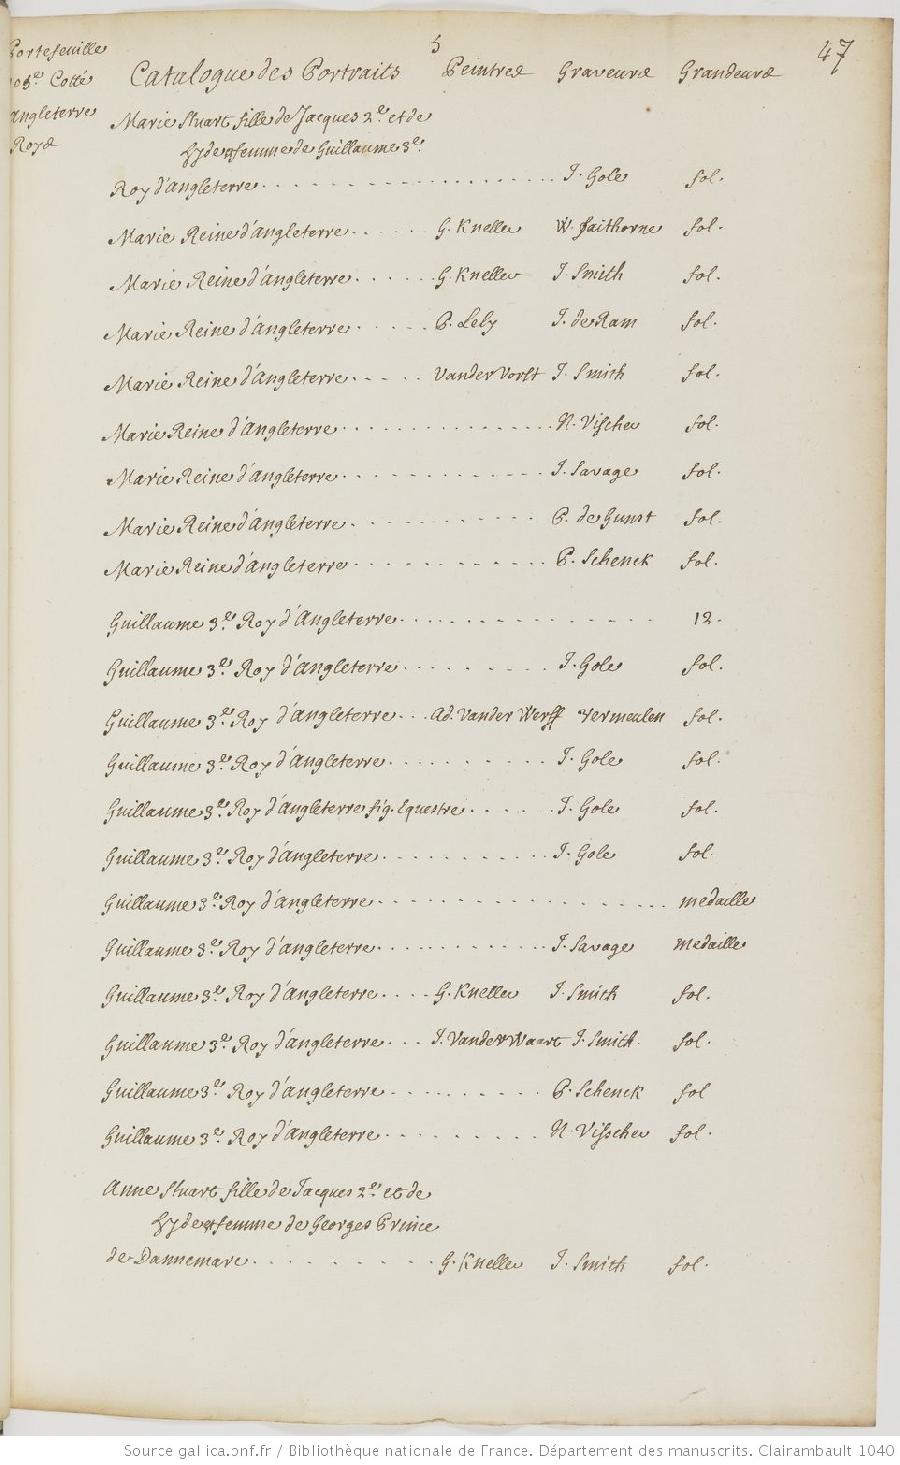 5
47
Portefeuille
108.e Cotté
angleterre
Roys
Catalogue des Portraits Peintres Graveurs Grandeurs
Marie Stuart fille de Jacques 2.e et de
hyde femme de Guillaume 3.e
Roy d'angleterre . . . . . . . J. Gole fol.
Marie Reine d'angleterre . . . . G. Kneller W. faithorne fol.
Marie Reine d'angleterre . . . . G. Kneller J. Smith fol.
Marie Reine d'angleterre . . . . P. Lely J. de Ram fol.
Marie Reine d'angleterre . . . . Vander Vorst J. Smith fol.
Marie Reine d'angleterre . . . . N. Vischer fol.
Marie Reine d'angleterre . . . . J. Savage fol.
Marie Reine d'angleterre . . . . P. de Gunst fol.
Marie Reine d'angleterre . . . . P. Schenck fol.
Guillaume 3.e Roy d'Angleterre . . . . 12.
Guillaume 3.e Roy d'angleterre . . . . J. Gole fol.
Guillaume 3.e Roy d'angleterre . . . Ad. Vander Werff Vermeulen fol.
Guillaume 3.e Roy d'angleterre . . . . J. Gole fol.
Guillaume 3.e Roy d'angleterre fig. Equestre . . . . J. Gole fol.
Guillaume 3.e Roy d'angleterre . . . . J. Gole fol
Guillaume 3.e Roy d'angleterre . . . . medaille
Guillaume 3.e Roy d'angleterre . . . . J. Savage medaille
Guillaume 3.e Roy d'angleterre . . . . G. Kneller J. Smith fol.
Guillaume 3.e Roy d'angleterre . . . J. Vander Waart J. Smith fol.
Guillaume 3.e Roy d'angleterre . . . . P. Schenck fol
Guillaume 3.e Roy d'angleterre . . . . N. Visscher fol.
Anne Stuart fille de Jacques 2.e et de
hyde femme de Georges Prince
de Dannemarc . . . . G. Kneller J. Smith fol.
Source gallica.bnf.fr / Bibliothèque nationale de France. Département des manuscrits. Clairambault 1040